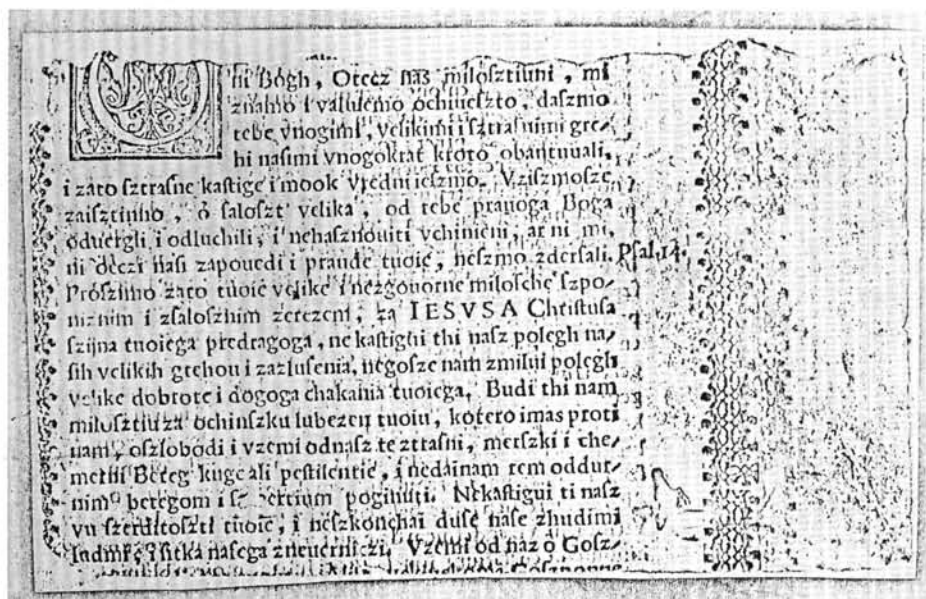 ni Bógh, Otecz nas milosztiuni, mi
znamo i valuiemo ochiueszto, daszmo
tebe vnogimi, velikimi i sztrasnimi gre-
hi nasimi vnogokrat kroto obantuuali,
i zato sztrasne kastige i mook vredni ieszmo. Vziszmosze
zaisztinno, ó saloszt velika, od tebe prauoga Boga
oduergli i odluchili, i nehasznouiti vchinieni, ar ni mi,
ni oczi nasi zapouedi i praude tuoie, neszmo zdersali. Psal. 14.
Prószimo zato tuoie velike i nezgouorne milosche szpo-
niznim i zsalosznim zerczem, za IESVSA Christusa
szijna tuoiega predragoga, ne kastigui thi nasz polegh na-
sih velikih grehou i zazlusenia, negosze nam zmilui polegh
velike dobrote i dogoga chakania tuoiega. Budi thi nam
milosztiu za ochinszku lubezen tuoiu, kotero imas proti
nam, oszlobodi i vzemi odnasz te ztrasni, merszki i che-
metni Beteg kuge ali pestilentie, i nedainam tem oddur-
nim betegom i poginuti. Nekastigui ti nasz
vu szerditoszti tuoie, i neszkonchai duse nase zhudimi
ludmi, sitka nasega zneuerniczi. Vzemi od naz o Gosz-